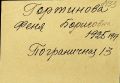 Гортинова
Феня Борисовна
1925 г.р.
Пограничная 13